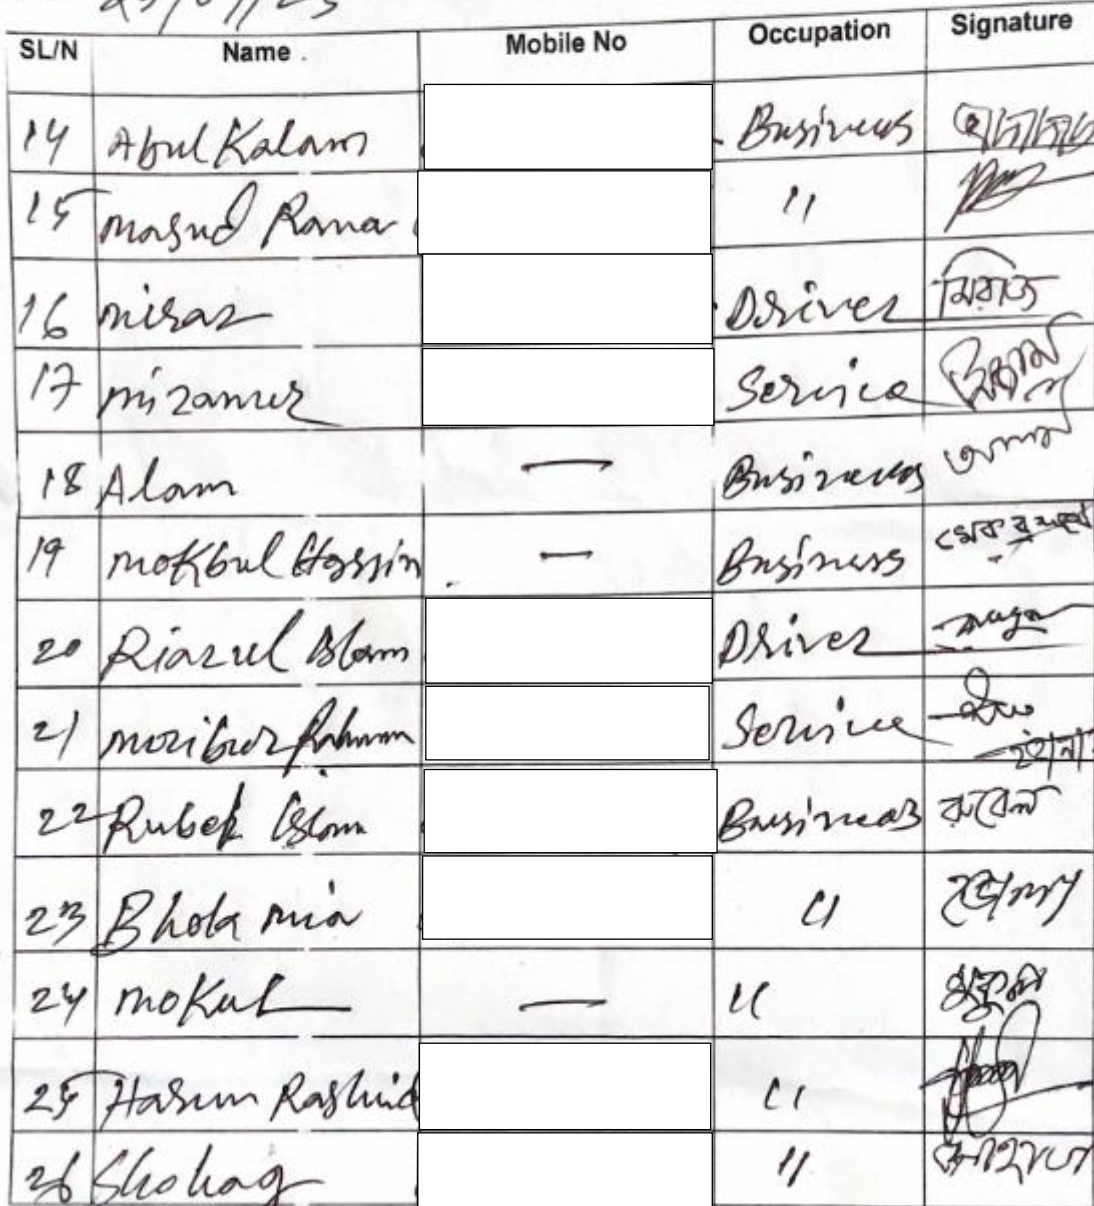 SL/N Name Mobile No Occupation Signature
14 Abul Kalam Business
15 Masud Rana "
16 Miraz Driver মিরাজ
17 Mizanur Service
18 Alam — Business আলম
19 Mokbul Hossin — Business
20 Riazul Islam Driver
21 Mozibur Rahman Service
22 Rubel Islam Business রুবেল
23 Bhola Mia " ভোলা
24 Mokul — " মুকুল
25 Harun Rashid "
26 Shohag "